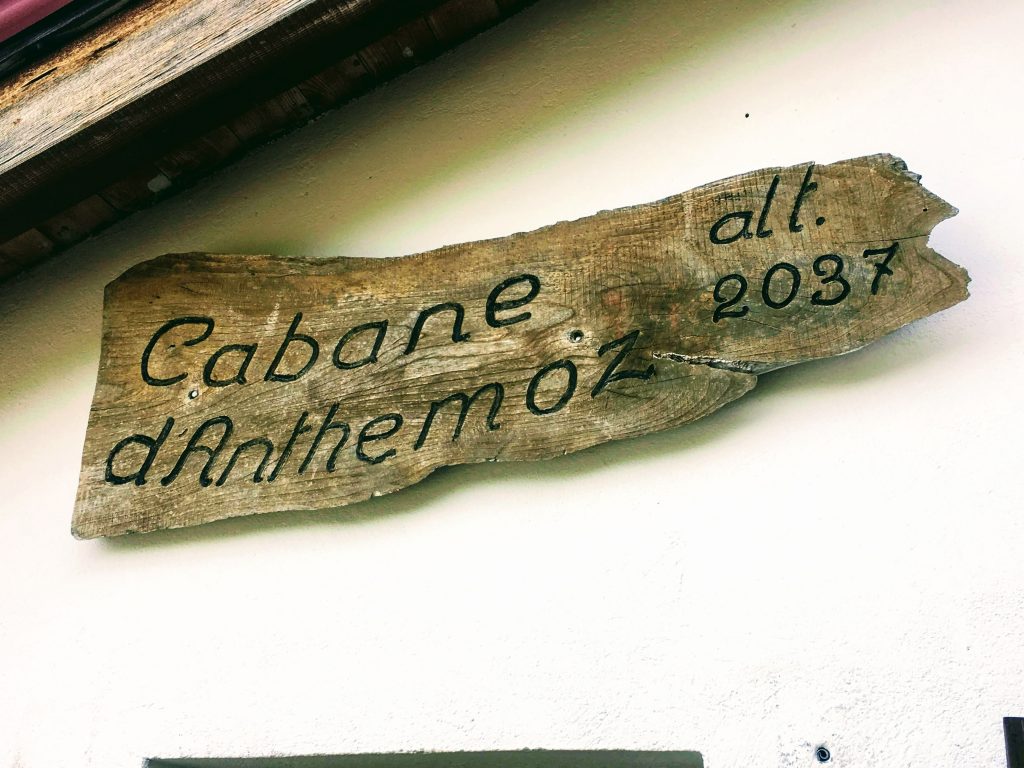 Cabane
d'Anthemoz
alt.
2037